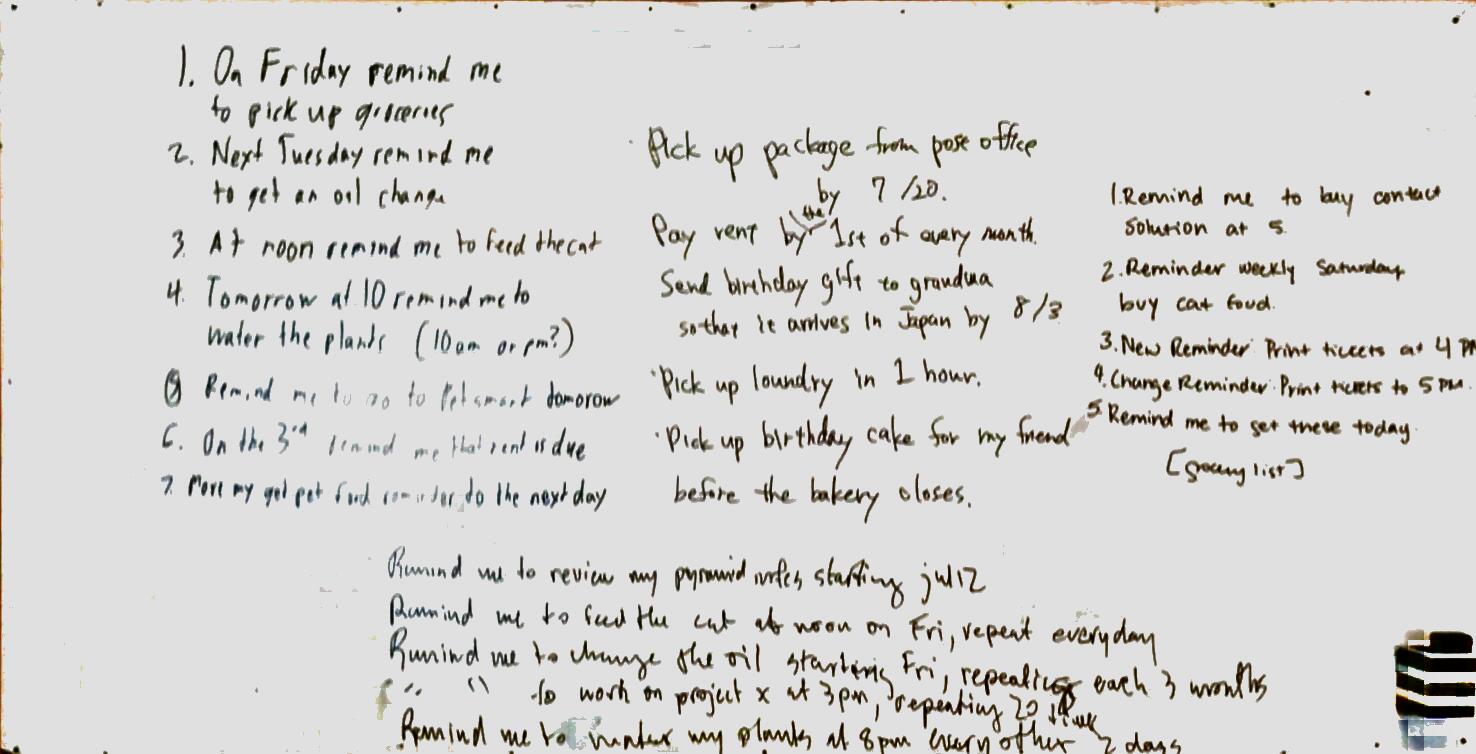 1. On Friday remind me
to pick up groceries
2. Next Tuesday remind me
to get an oil change
3. At noon remind me to feed the cat
4. Tomorrow at 10 remind me to
water the plants (10am or pm?)
Remind me to go to Petsmart tomorow
6. On the 3rd remind me that rent is due
7. Move my get pet food reminder to the next day
· Pick up package from pose office
by 7/20.
Pay rent by the 1st of every month.
Send birthday gift to grandma
so that it arrives in Japan by 8/3
· Pick up laundry in 1 hour.
· Pick up birthday cake for my friend
before the bakery closes.
1. Remind me to buy contact
solution at 5
2. Reminder weekly Saturday
buy cat food.
3. New Reminder: Print tickets at 4 PM
4. Change Reminder: Print tickets to 5 PM.
5. Remind me to get these today.
[grocery list]
Remind me to review my pyramid notes starting
Remind me to feed the cat at noon on Fri, repeat everyday
Remind me to change the oil starting Fri, repeating each 3 months
" " to work on project x at 3pm, repeating 20
Remind me to water my plants at 8pm every other 2 days